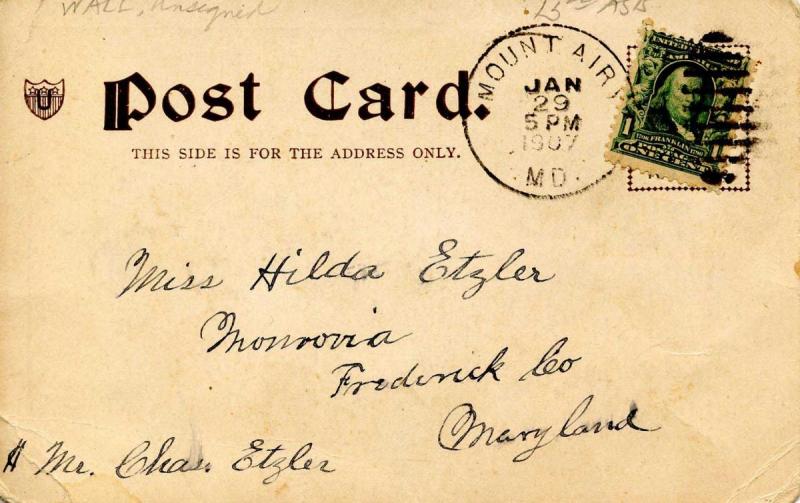 WALL, Unsigned
Post Card.
THIS SIDE IS FOR THE ADDRESS ONLY.
U
MOUNT AIRY
JAN
29
5 PM
1907
MD.
FRANKLIN
POSTAGE
ONE CENT
1
Miss Hilda Etzler
Monrovia
Frederick Co
Maryland
Mr. Chas. Etzler